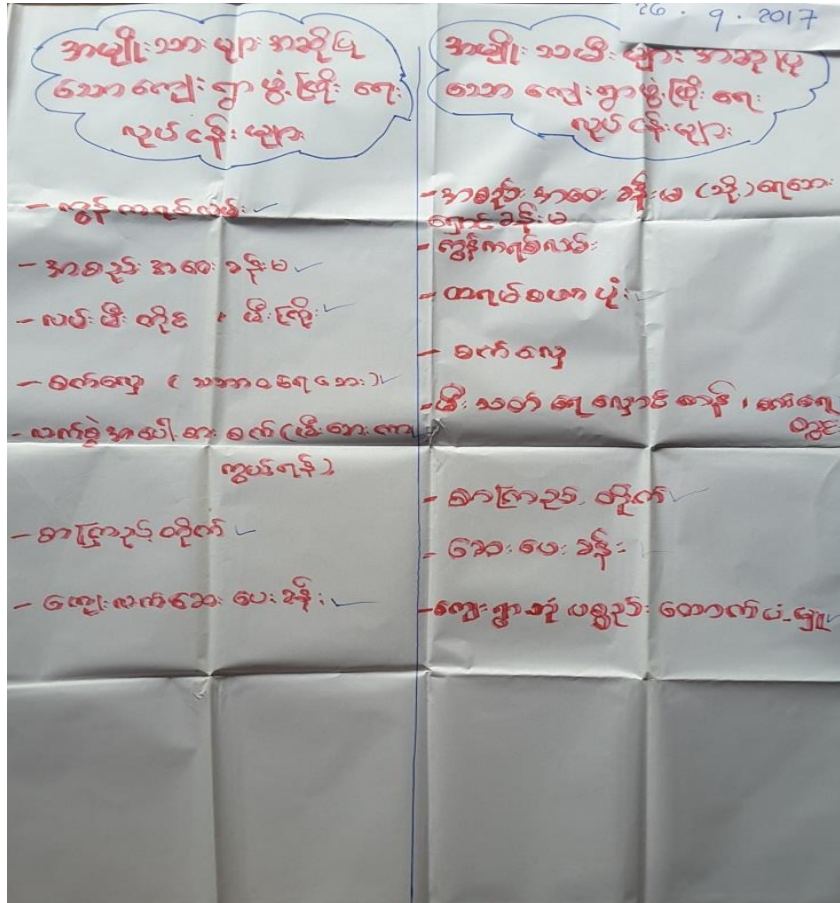 26 . 9 . 2017
အမျိုးသားများ အဆိုပြု
သော ကျေးရွာဖွံ့ဖြိုးရေး
လုပ်ငန်းများ
- ကွန်ကရစ်လမ်း ✓
- အစည်းအဝေးခန်းမ ✓
- လမ်းမီးတိုင် ၊ မီးကြိုး ✓
- စက်လှေ ( သဘာဝရေဘေး ) ✓
- လက်စွဲအပေါ့စား စက် (မီးဘေးကာ
ကွယ်ရန်)
- စာကြည့်တိုက် ✓
- ကျေးလက်ဆေးပေးခန်း ✓
အမျိုးသမီးများ အဆိုပြု
သော ကျေးရွာဖွံ့ဖြိုးရေး
လုပ်ငန်းများ
- အစည်းအဝေးခန်းမ (သို့) ရေဘေး
ရှောင်ခန်းမ
- ကွန်ကရစ်လမ်း
- ထရမ်စဖော်ပုံး ✓
- စက်လှေ
- မီးသတ်ရေလှောင်ကန် ၊ စက်ရေ
တွင်း
- စာကြည့်တိုက် ✓
- ဆေးပေးခန်း
- ကျေးရွာသုံးပစ္စည်းထောက်ပံ့မှု ✓